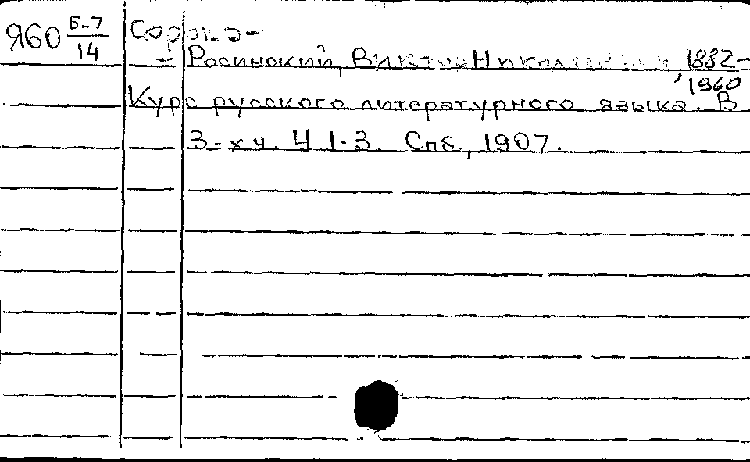 Я60 Б-7/14
Сорока-
- Росинский, Виктор Николаевич 1882-
1960
Курс русского литературного языка. В
3-х ч. Ч 1-3. Спб, 1907.